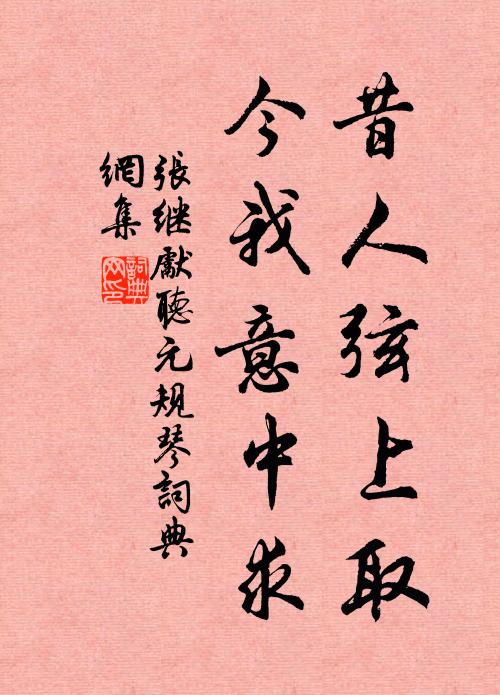 昔人弦上取
今我意中求
張继獻聽元規琴詞典
網集
詞典
網印